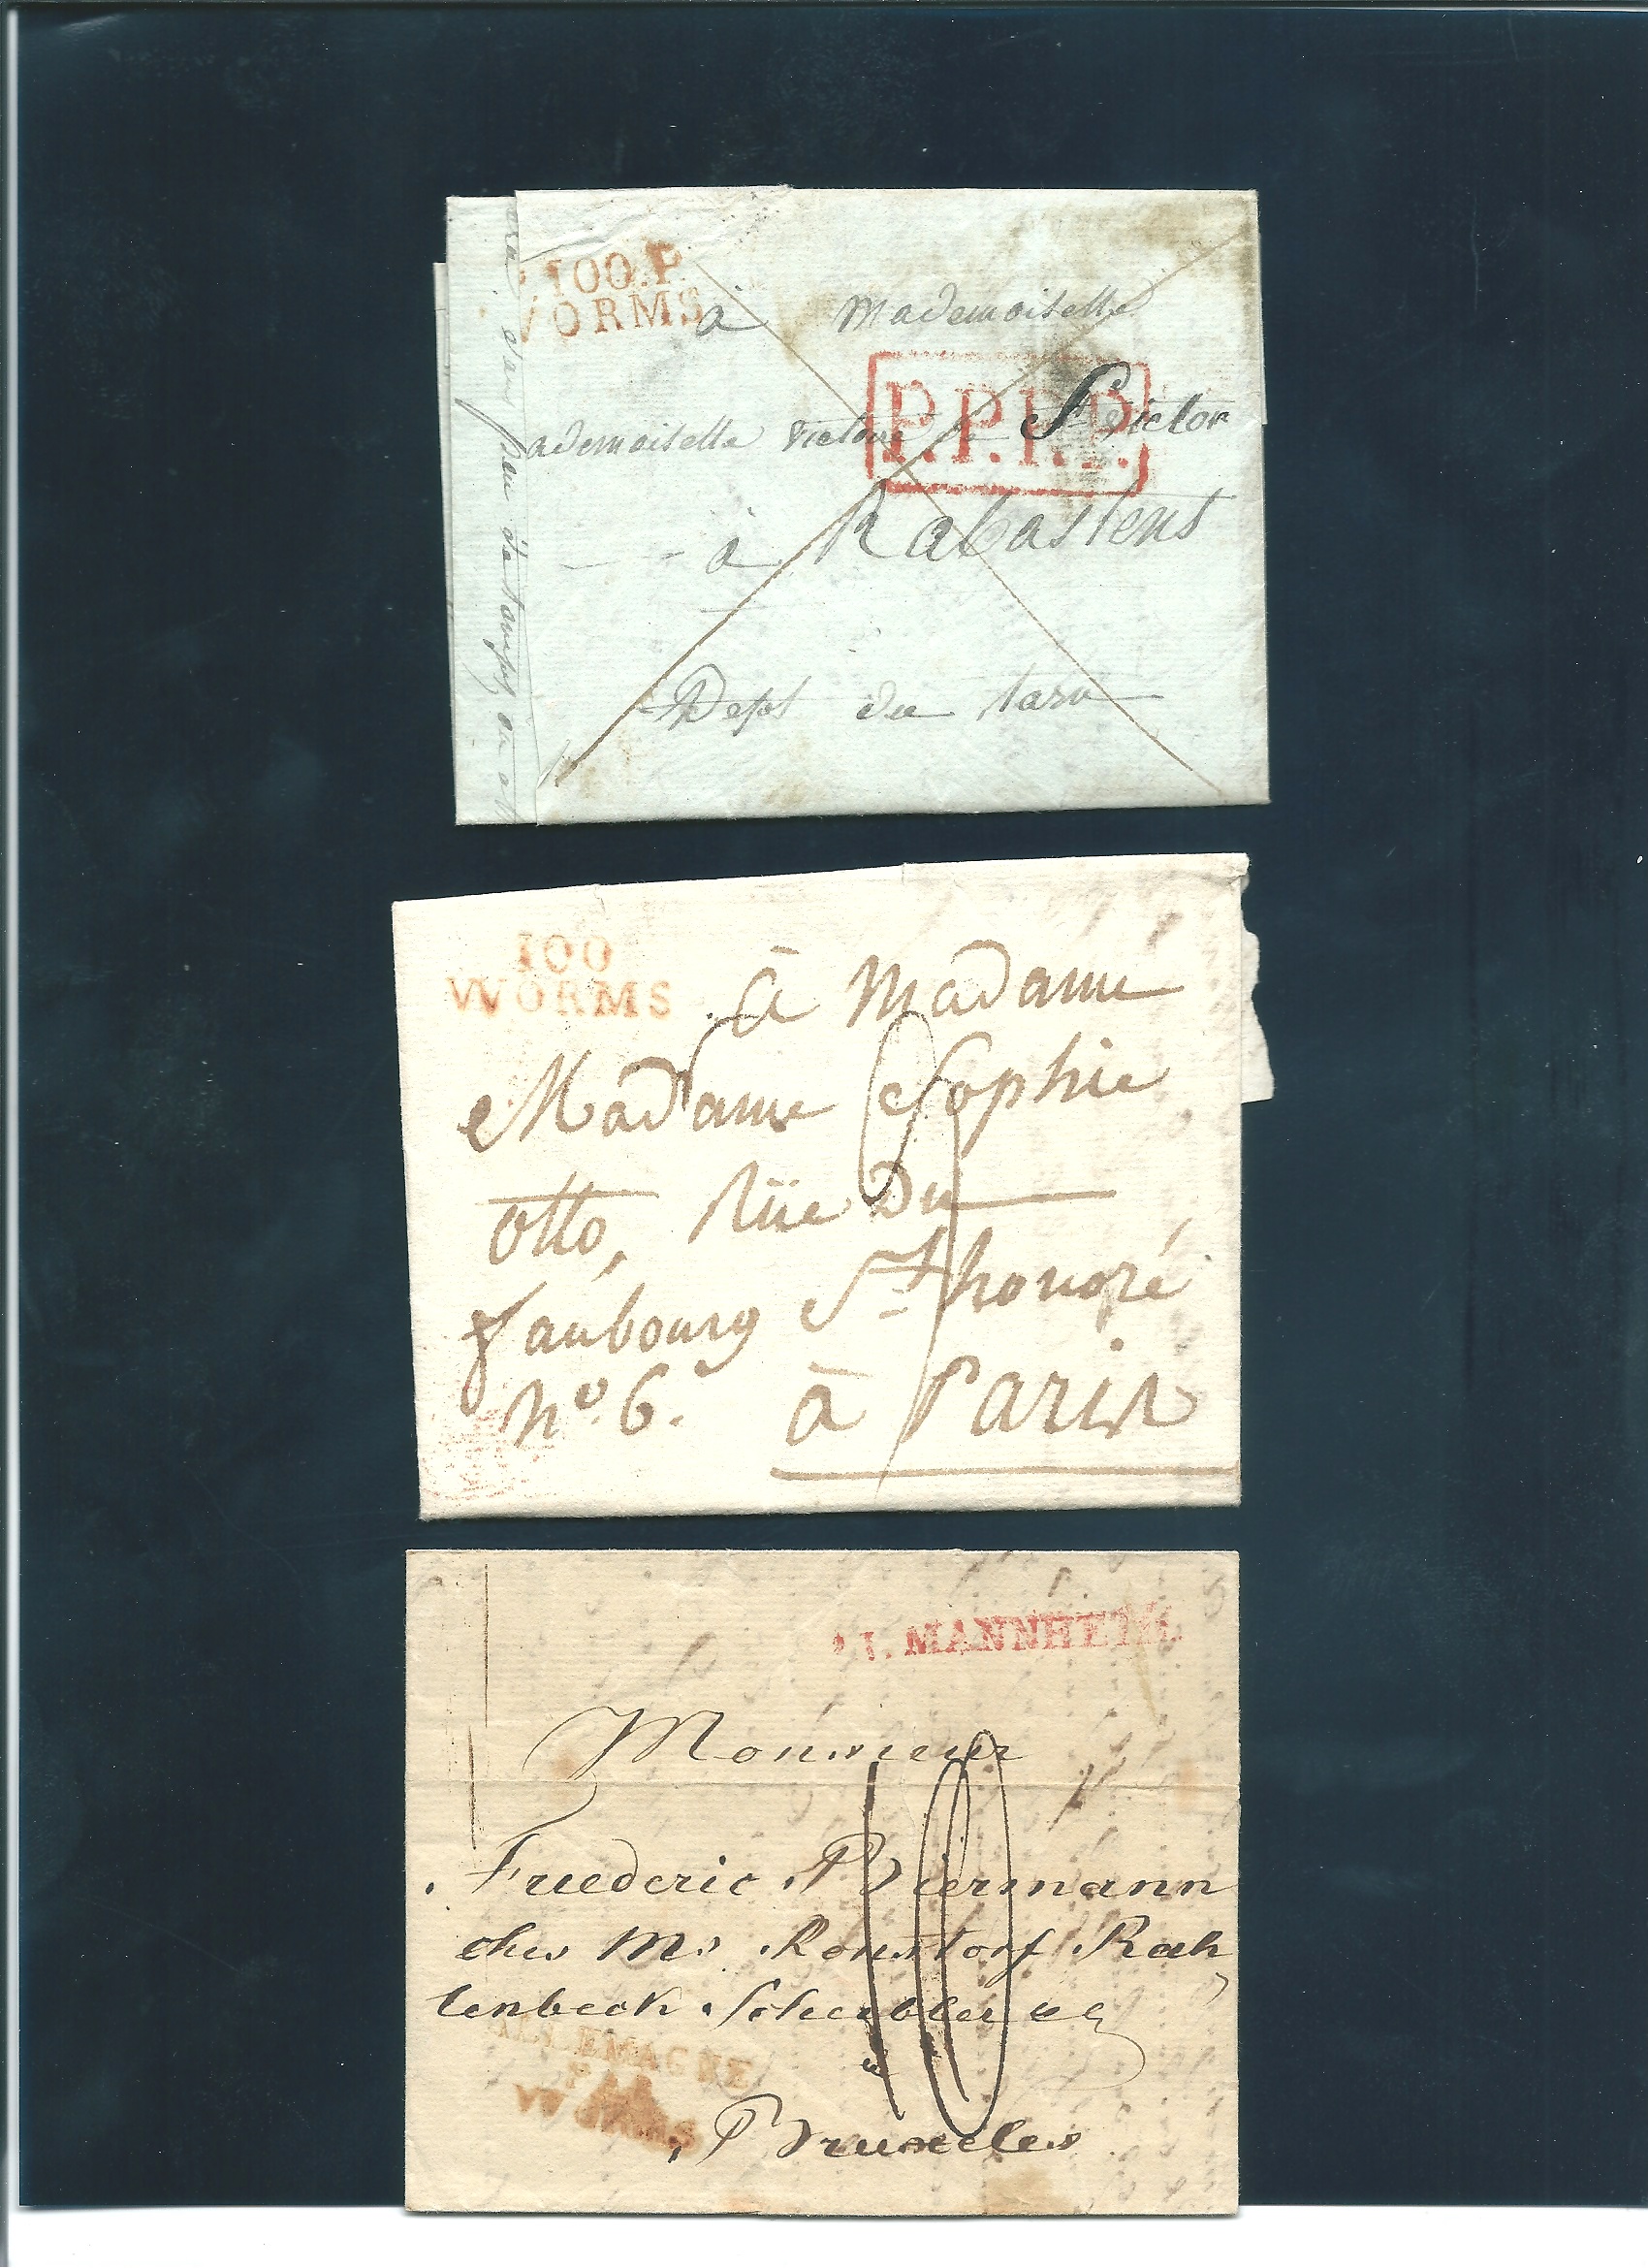 P.100.P.
WORMS
à Mademoiselle
P.P.P.P.
ademoiselle Victoire de St Victor
à Rabastens
Dept du tarn
100
WORMS
à Madame
Madame Sophie
otto, Rüe Du
faubourg St honoré
no. 6. à Paris
R.1. MANNHEIM.
Monsieur
Friederic Biermann
chez Ms Ronstorf Rah
lenbeck Scheibler &c
à
10
ALLEMAGNE
PAR
WORMS
Bruxelles